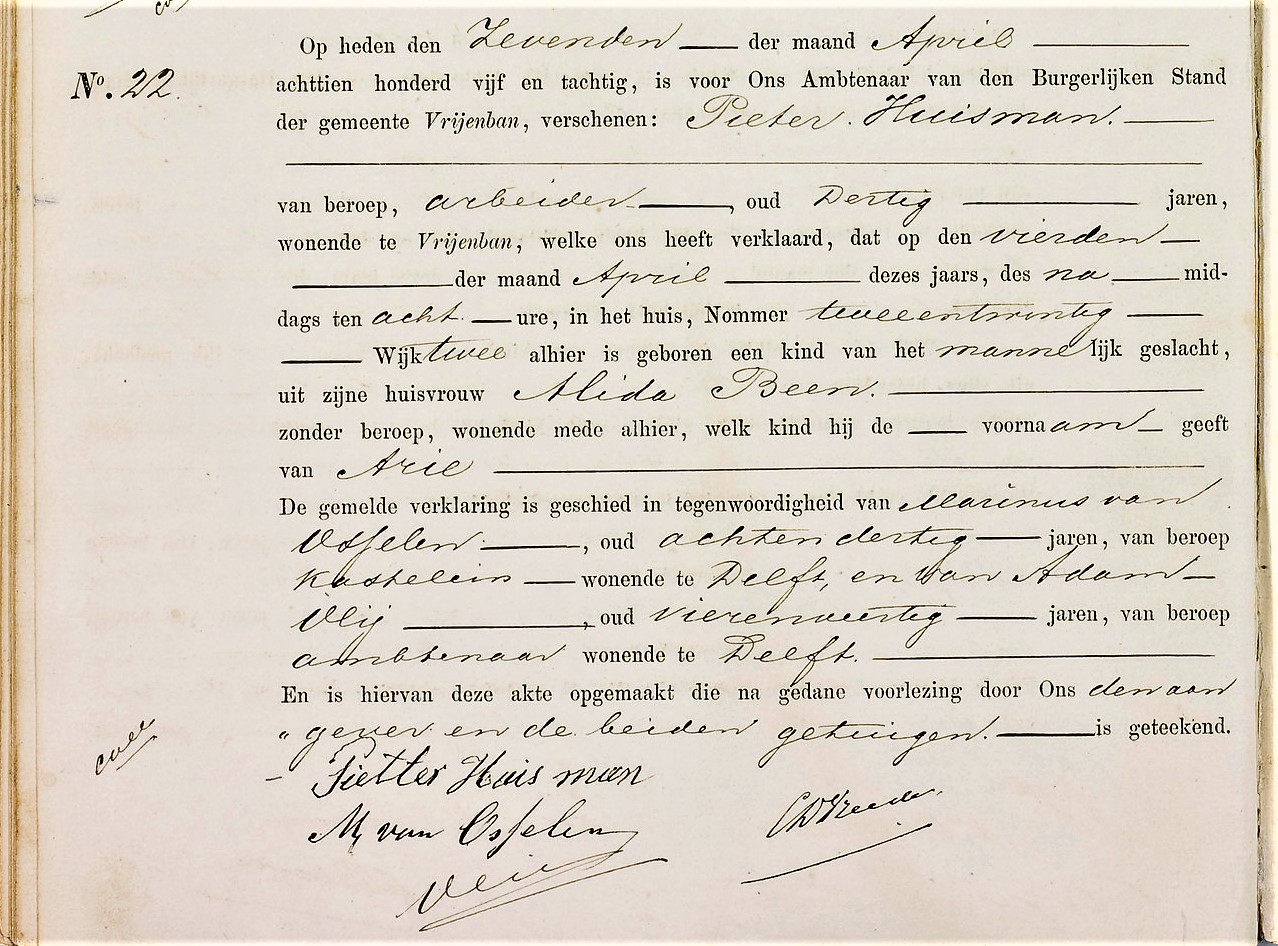 Op heden den Zevenden der maand April
No. 22. achttien honderd vijf en tachtig, is voor Ons Ambtenaar van den Burgerlijken Stand
der gemeente Vrijenban, verschenen: Pieter Huisman.
van beroep, arbeider, oud Dertig jaren,
wonende te Vrijenban, welke ons heeft verklaard, dat op den vierden
der maand April dezes jaars, des na mid-
dags ten acht ure, in het huis, Nommer tweeentwintig
Wijk twee alhier is geboren een kind van het mannelijk geslacht,
uit zijne huisvrouw Alida Been.
zonder beroep, wonende mede alhier, welk kind hij de voornaam geeft
van Arie
De gemelde verklaring is geschied in tegenwoordigheid van Marinus van
Osselen, oud achtendertig jaren, van beroep
Kastelein wonende te Delft, en van Adam
Vlij, oud vierenveertig jaren, van beroep
ambtenaar wonende te Delft.
En is hiervan deze akte opgemaakt die na gedane voorlezing door Ons den aan
„ gever en de beiden getuigen. is geteekend.
Pietter Huisman
M van Osselen